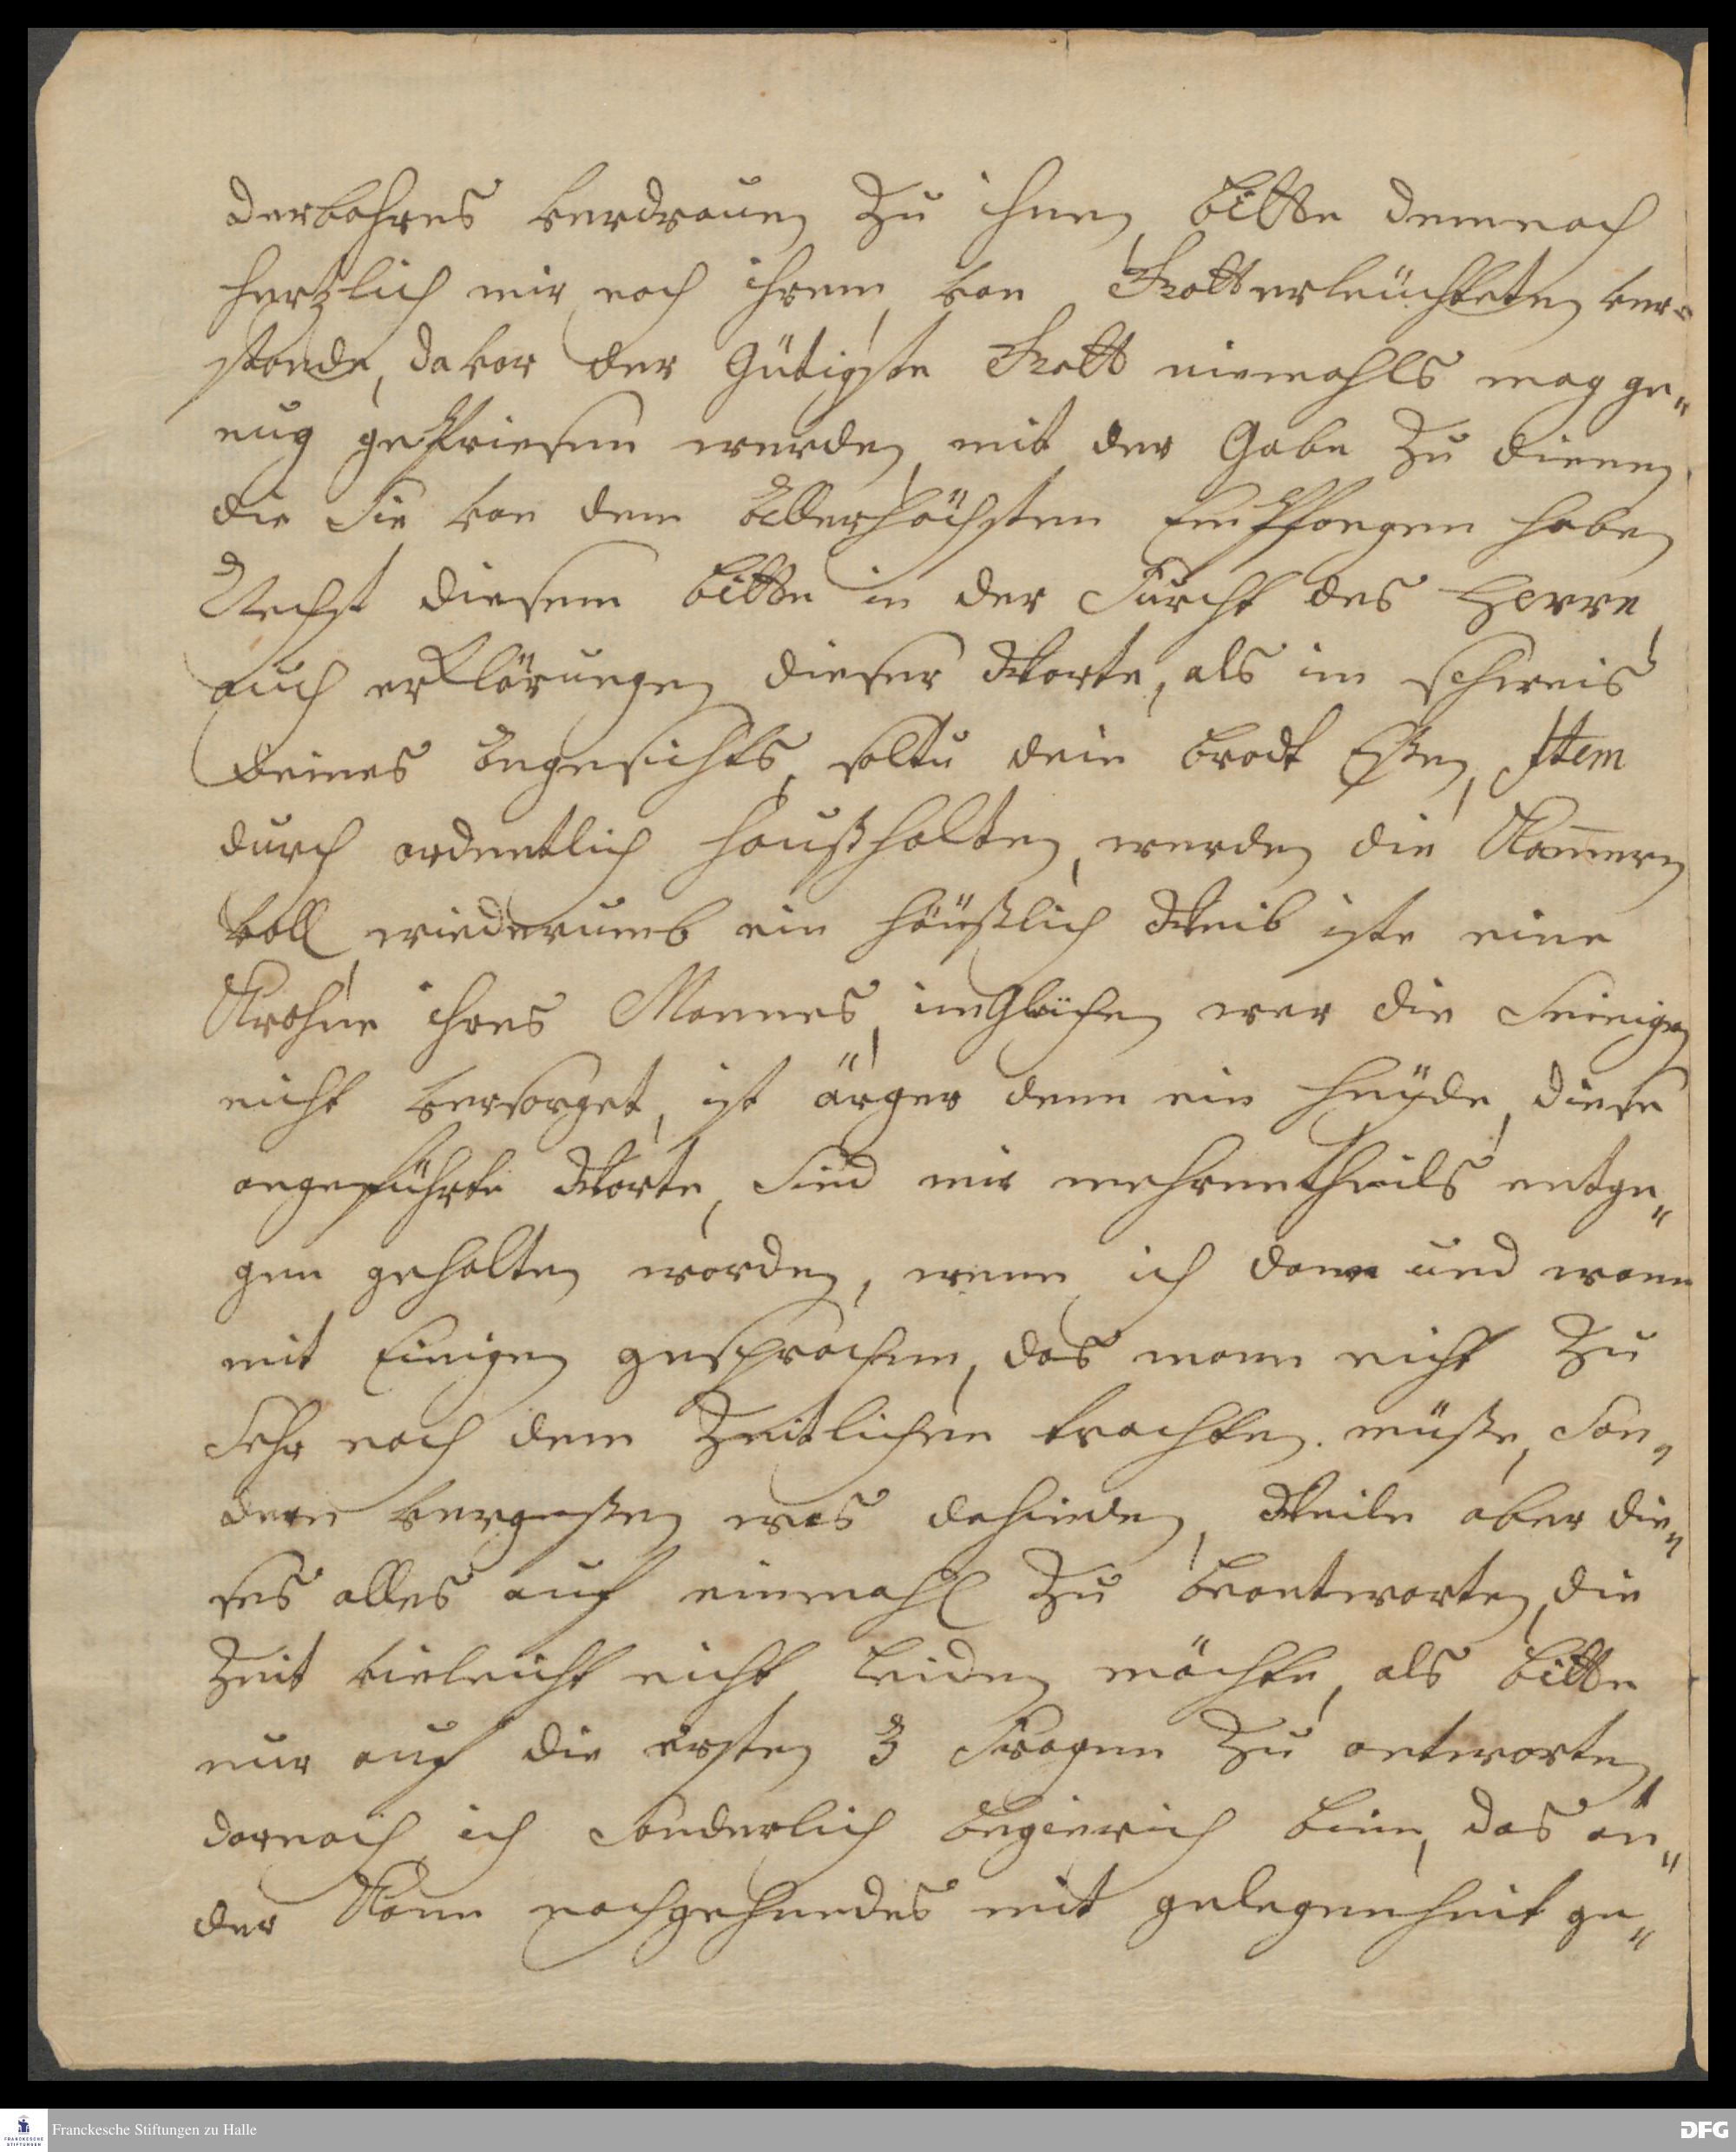 derbahres verdrauen zu ihnen, bitte demnach
hertzlich mir nach ihrem, von Gott erleüchteten ver-
stande, davor der Gütigste Gott niemahls mag ge„
nug gePriesen werden, mit der Gabe zu dienen,
die Sie von dem Allerhöchsten EmPfangen haben
Nechst diesem bitte in der Furcht des HErrn,
auch erKlärungen dieser Worte, als im schweis
deines Angesichts, soltu dein brodt Eßen, Item
durch ordentlich haußhalten, werden die Kam̄ern
voll, wiederumb ein häußlich Weib iste eine
Krohne ihres Mannes, imGleichen wer die Seinigen
nicht versorget, ist ärger denn ein Heyde, diese
angeführte Worte, Sind mir mehrentheils entge„
gen gehalten worden, wenn ich dann und wann
mit Einigen gesprochen, das mann nicht zu
Sehr nach dem Zeitlichen trachten müße, Son„
dern vergeßen was dahinden, Weile aber die„
ses alles auf einmahl zu beantworten, die
Zeit vieleicht nicht leiden möchte, als bitte
nur auf die ersten 3 Fragen zu antworten,
darnach ich Sonderlich begierich binn, das an„
der Kann nachgehendes mit gelegenheit ge„
Franckesche Stiftungen zu Halle
FRANCKESCHE
STIFTUNGEN
DFG